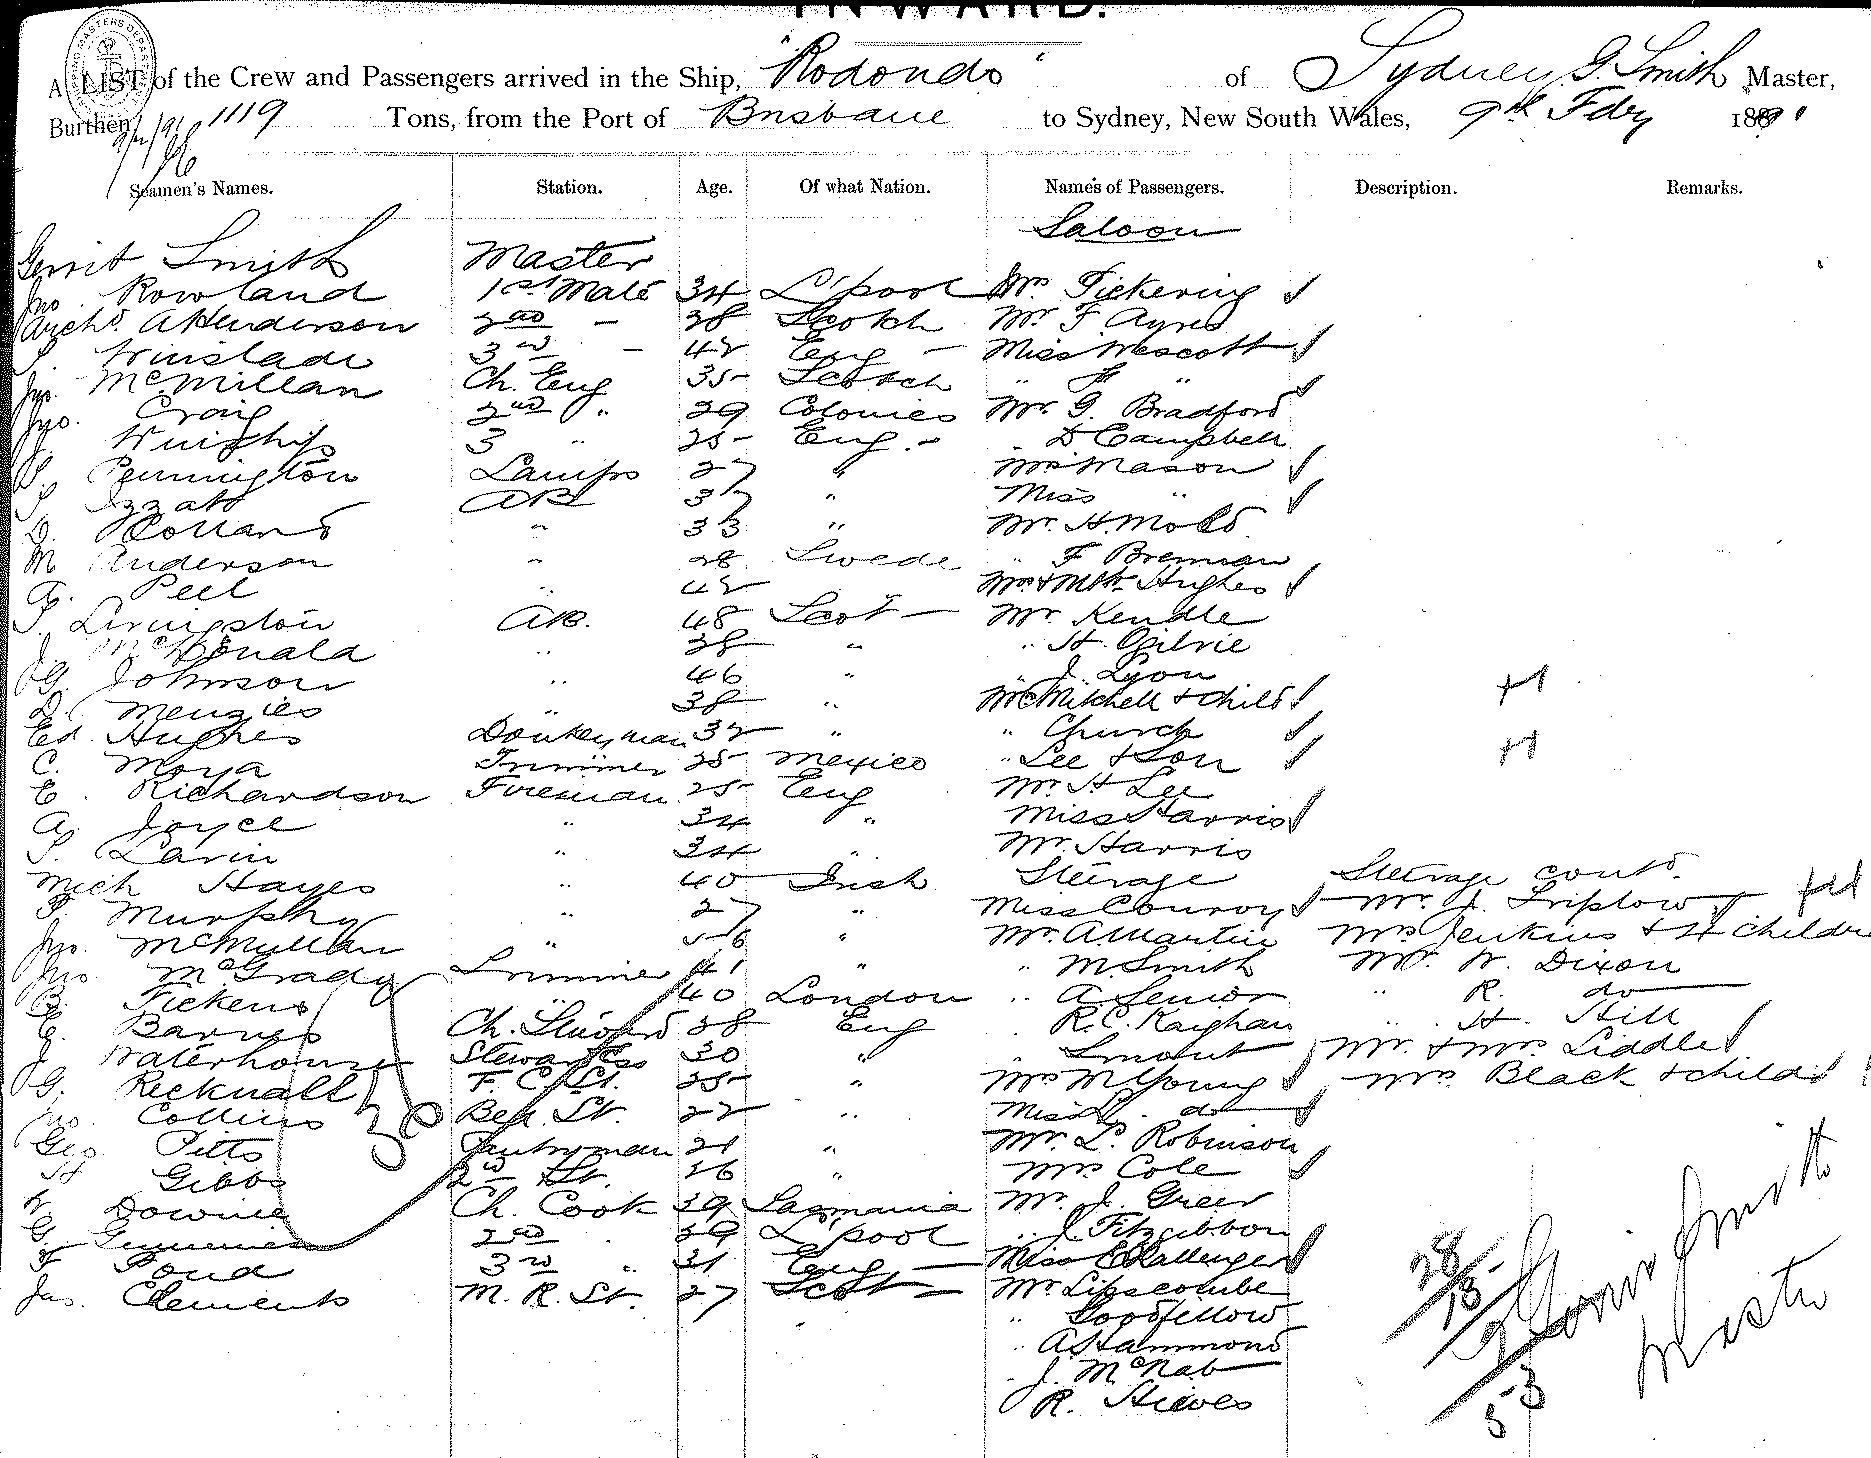 INWARD.
A LIST of the Crew and Passengers arrived in the Ship, "Rodondo" of Sydney, G. Smith Master,
Burthen 1119 Tons, from the Port of Brisbane to Sydney, New South Wales, 9th Feby 189
Seamen's Names. Station. Age. Of what Nation. Names of Passengers. Description. Remarks.
Saloon
Gerrit Smith Master
Jno Rowland 1st Mate 34 L'pool Mrs Pickering
Archd. A Henderson 2nd - 38 Scotch Mr. F. Ayres
Winslade 3rd - 42 Eng - Miss Wescott
Jno. McMillan Ch. Eng 35 Scotch " "
Jno. Craig 2nd " 29 Colonies Mr. G. Bradford
Winship 3 " 25 Eng. - D Campbell
Pennington Lamps 27 " Mrs Mason
Izzat AB 37 " Miss "
D. Holland " 33 " Mr. H. Mold
M Anderson " 28 Swede " F Brennan
A. Peel " 42 " Mr & Mrs Hughes
Livingston AB. 48 Scot - Mr Kendle
J. McDonald " 38 " " H. Ogilvie
G. Johnson " 46 " " J. Lyon
D. Menzies " 38 " Mrs Mitchell & child
Ed. Hughes Donkeyman 32 " " Church
C. Moya Trimmer 25 Mexico " Lee & Son
E. Richardson Fireman 25 Eng Mr. H Lee
A. Joyce " 34 " Miss Harris
Larin " 34 " Mr. Harris
Mich Hayes " 40 Irish Steerage Steerage contd.
Murphy " 27 " Miss Conroy Mr. J. Triplow
Jno. McMullan " 56 " Mr. A Martin Mrs Jenkins & 4 childre
Jno. McGrady Trimmer 41 " " M. Smith Mr. W. Dixon
B. Pickens " 40 London " A Senior " R. do
E. Barnes Ch. Steward 38 Eng " R. C. Kaighan " H. Hill
J. Waterhouse Stewardess 30 " " Smout Mr. & Mrs Liddle
G. Recknall F. C. St. 25 " Mrs M Young Mrs Black & child
Jno. Collins Bed. St. 22 " Miss do
Geo Pitts Pantryman 21 " Mr. L. Robinson
H Gibbs 2nd St. 26 " Mrs Cole
W Downie Ch. Cook 39 Tasmania Mr. J. Greer
G. 2nd " 29 L'pool " J Fitzgibbon
F Pond 3rd " 31 Eng - Miss Challenger
Jas. Clements M. R. St. 27 Scot - Mr Lipscombe
" Goodfellow
" A Hammond
" J. McNab
" R. Hieves
38
28
18
53
Gerrit Smith
Master